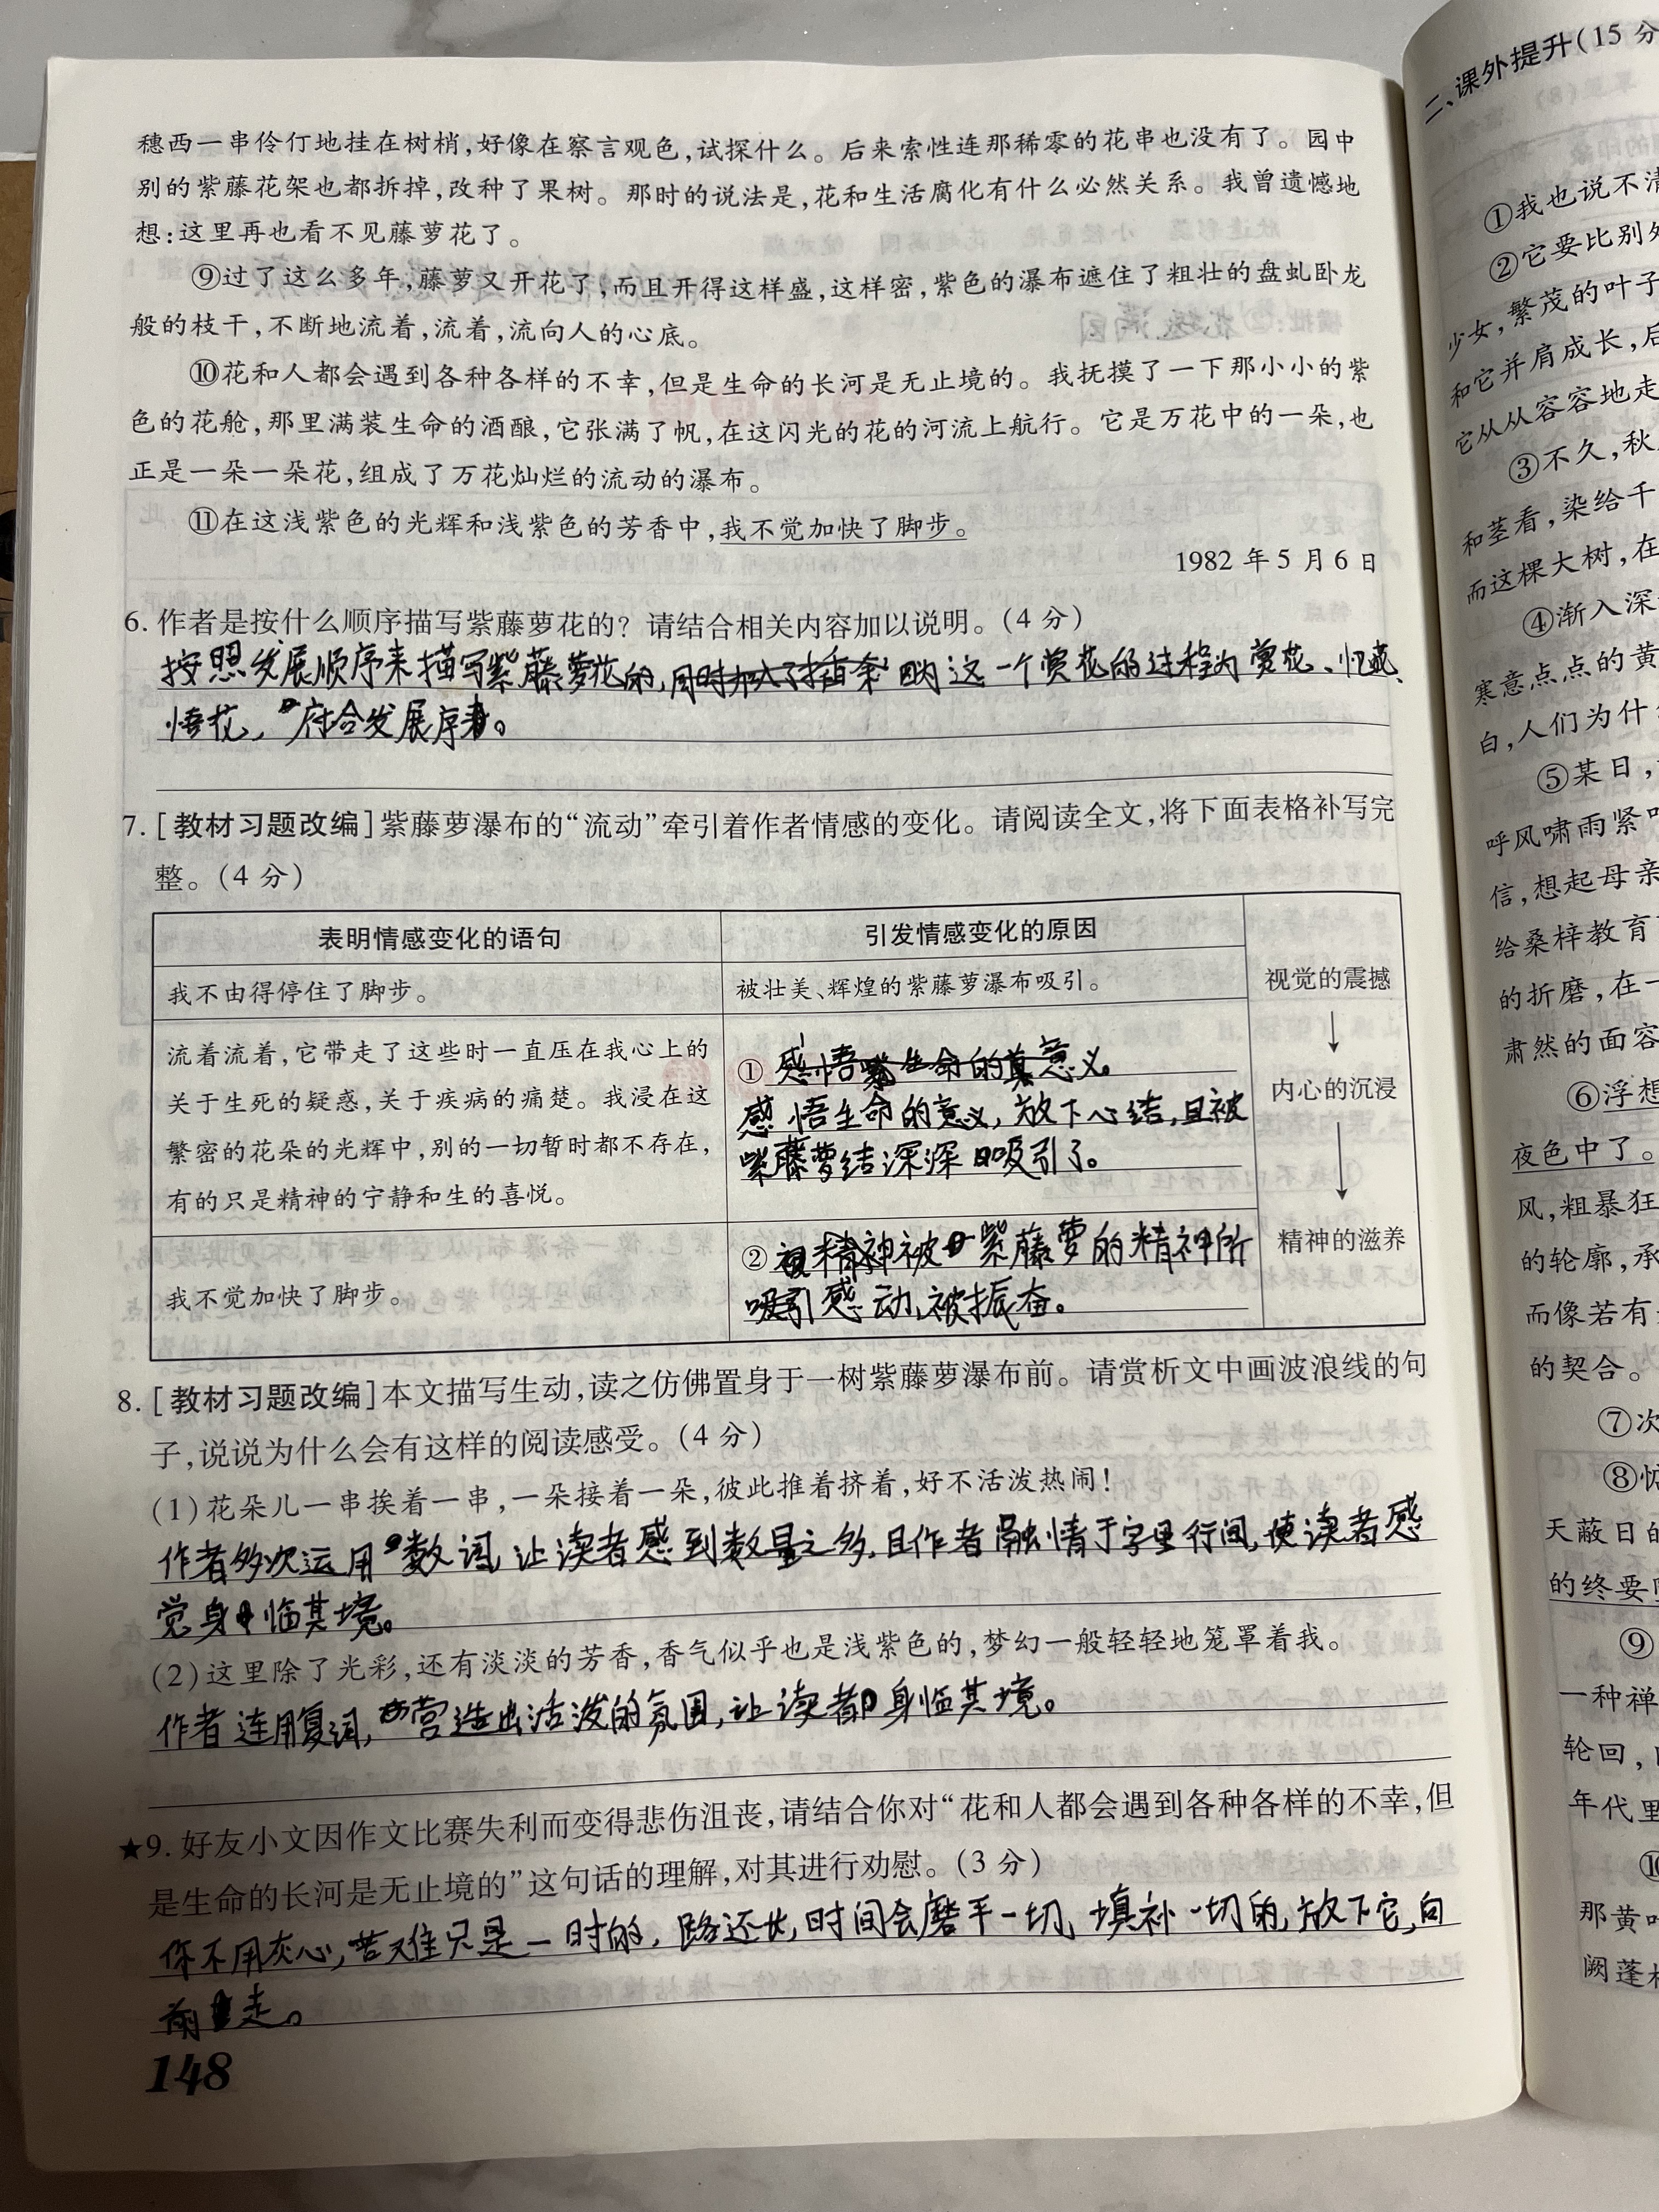 穗西一串伶仃地挂在树梢,好像在察言观色,试探什么。后来索性连那稀零的花串也没有了。园中
别的紫藤花架也都拆掉,改种了果树。那时的说法是,花和生活腐化有什么必然关系。我曾遗憾地
想:这里再也看不见藤萝花了。
⑨过了这么多年,藤萝又开花了,而且开得这样盛,这样密,紫色的瀑布遮住了粗壮的盘虬卧龙
般的枝干,不断地流着,流着,流向人的心底。
⑩花和人都会遇到各种各样的不幸,但是生命的长河是无止境的。我抚摸了一下那小小的紫
色的花舱,那里满装生命的酒酿,它张满了帆,在这闪光的花的河流上航行。它是万花中的一朵,也
正是一朵一朵花,组成了万花灿烂的流动的瀑布。
⑪在这浅紫色的光辉和浅紫色的芳香中,我不觉加快了脚步。
1982年5月6日
6. 作者是按什么顺序描写紫藤萝花的?请结合相关内容加以说明。(4分)
按照发展顺序来描写紫藤萝花的,这一个赏花的过程为赏花、忆花、
悟花,符合发展序。
7. [教材习题改编]紫藤萝瀑布的“流动”牵引着作者情感的变化。请阅读全文,将下面表格补写完
整。(4分)
表明情感变化的语句 引发情感变化的原因
我不由得停住了脚步。 被壮美、辉煌的紫藤萝瀑布吸引。 视觉的震撼
流着流着,它带走了这些时一直压在我心上的
关于生死的疑惑,关于疾病的痛楚。我浸在这
繁密的花朵的光辉中,别的一切暂时都不存在,
有的只是精神的宁静和生的喜悦。
①
感悟生命的意义,放下心结,且被
紫藤萝结深深吸引了。
内心的沉浸
我不觉加快了脚步。
②精神被紫藤萝的精神所
吸引感动,被振奋。
精神的滋养
8. [教材习题改编]本文描写生动,读之仿佛置身于一树紫藤萝瀑布前。请赏析文中画波浪线的句
子,说说为什么会有这样的阅读感受。(4分)
(1)花朵儿一串挨着一串,一朵接着一朵,彼此推着挤着,好不活泼热闹!
作者多次运用数词,让读者感到数量之多,且作者融情于字里行间,使读者感
觉身临其境。
(2)这里除了光彩,还有淡淡的芳香,香气似乎也是浅紫色的,梦幻一般轻轻地笼罩着我。
作者连用复词,营造出活泼的氛围,让读者身临其境。
★9. 好友小文因作文比赛失利而变得悲伤沮丧,请结合你对“花和人都会遇到各种各样的不幸,但
是生命的长河是无止境的”这句话的理解,对其进行劝慰。(3分)
你不用灰心,苦难只是一时的,路还长,时间会磨平一切,填补一切的,放下它,向
前走。
148
二、课外提升(15分
①我也说不清
②它要比别处
少女,繁茂的叶子
和它并肩成长,后
它从从容容地走
③不久,秋
和茎看,染给千
而这棵大树,在
④渐入深
寒意点点的黄
白,人们为什
⑤某日,
呼风啸雨紧
信,想起母亲
给桑梓教育
的折磨,在一
肃然的面容
⑥浮想
夜色中了。
风,粗暴狂
的轮廓,承
而像若有
的契合。
⑦次
⑧
天蔽日的
的终要
⑨
一种禅
轮回,
年代里
⑩
那黄叶
阙蓬